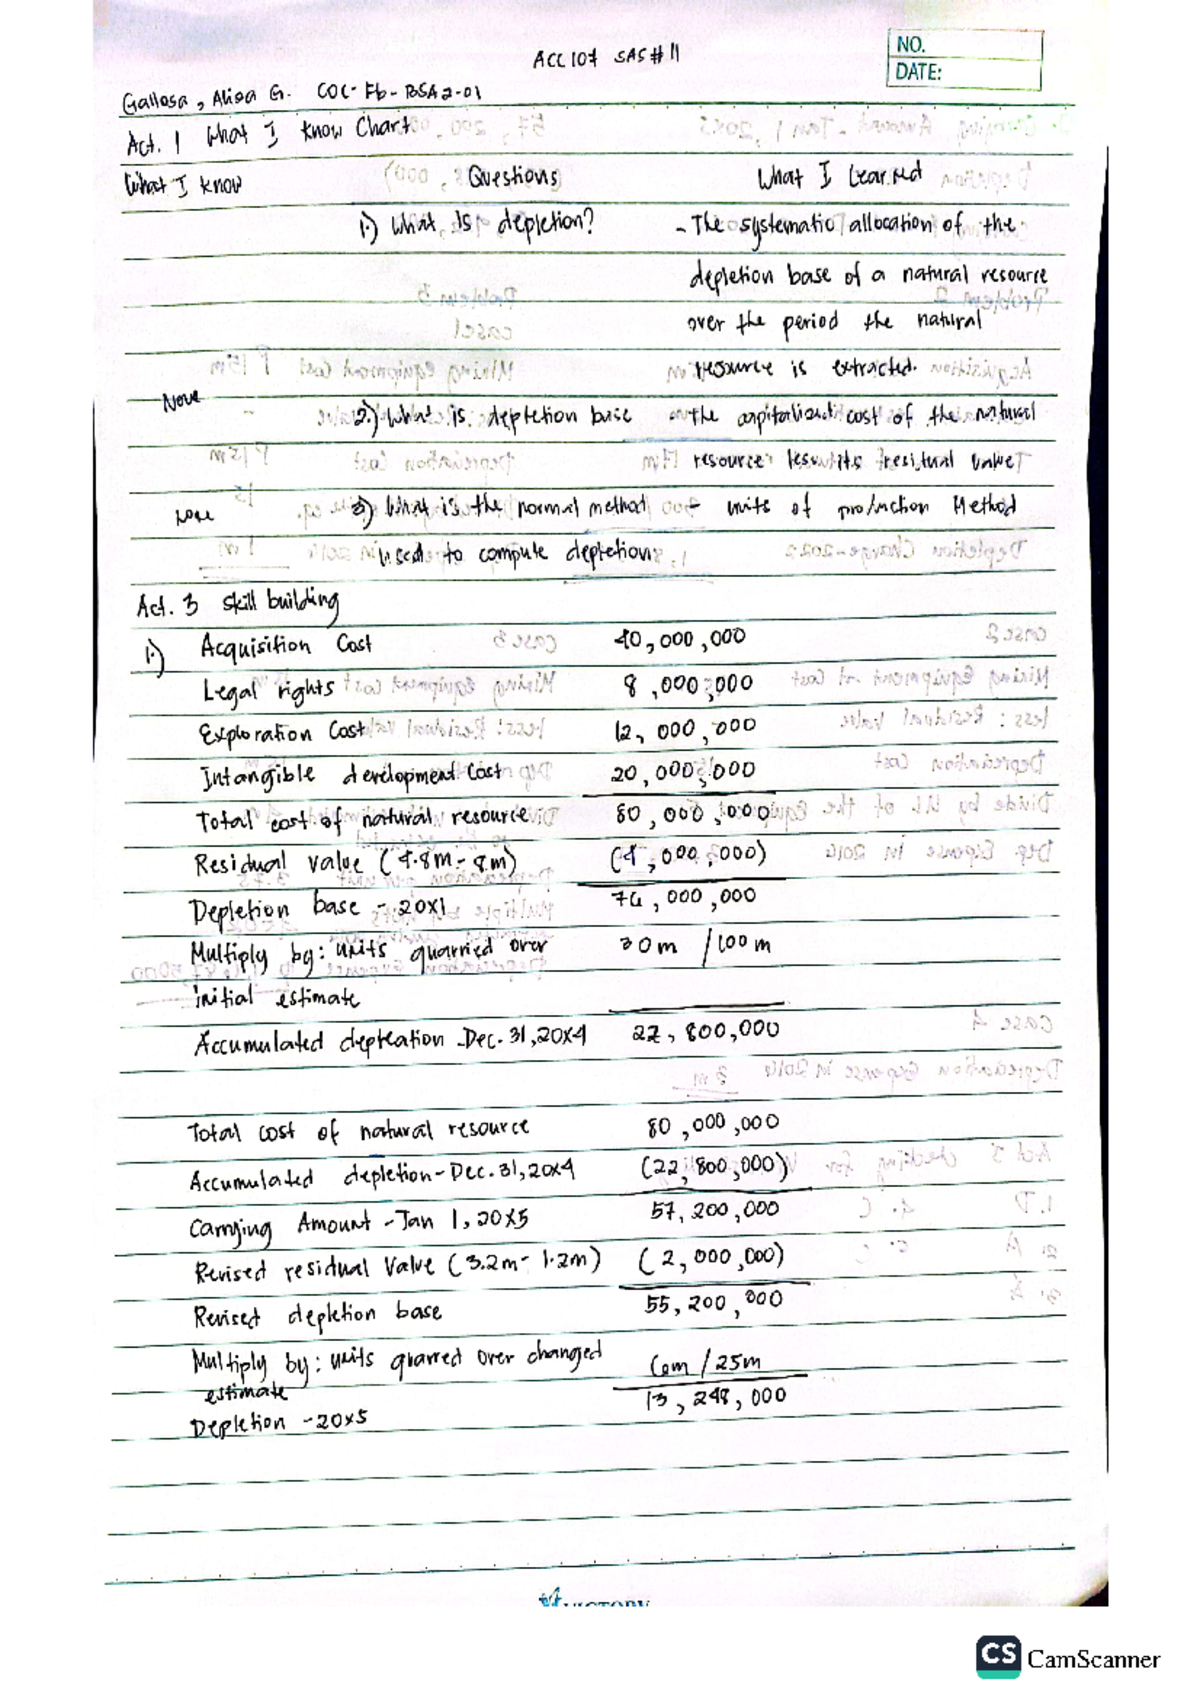 ACC 107 SAS # 11
NO.
DATE:
Gallosa, Aliga G. COC-FB-BSA2-01
Act. 1 What I Know Chart
What I know Questions What I Learned
1.) What is depletion? - The systematic allocation of the
depletion base of a natural resource
over the period the natural
resource is extracted.
None 2.) What is depletion base - the capitalized cost of the natural
resource less its residual value
None 3) What is the normal method - units of production Method
used to compute depletion
Act. 3 skill building
1.) Acquisition Cost 40,000,000
Legal rights 8,000,000
Exploration Cost 12,000,000
Intangible development Cost 20,000,000
Total cost of natural resource 80,000,000
Residual value (4.8m - 8m) (4,000,000)
Depletion base - 20x1 76,000,000
Multiply by: units quarried over 30m / 100m
initial estimate
Accumulated depleation - Dec. 31, 20x4 22,800,000
Total cost of natural resource 80,000,000
Accumulated depletion - Dec. 31, 20x4 (22,800,000)
Carrying Amount - Jan 1, 20x5 57,200,000
Revised residual Value (3.2m - 1.2m) (2,000,000)
Revised depletion base 55,200,000
Multiply by: units quarred over changed 6m / 25m
estimate
Depletion - 20x5 13,248,000
CS CamScanner